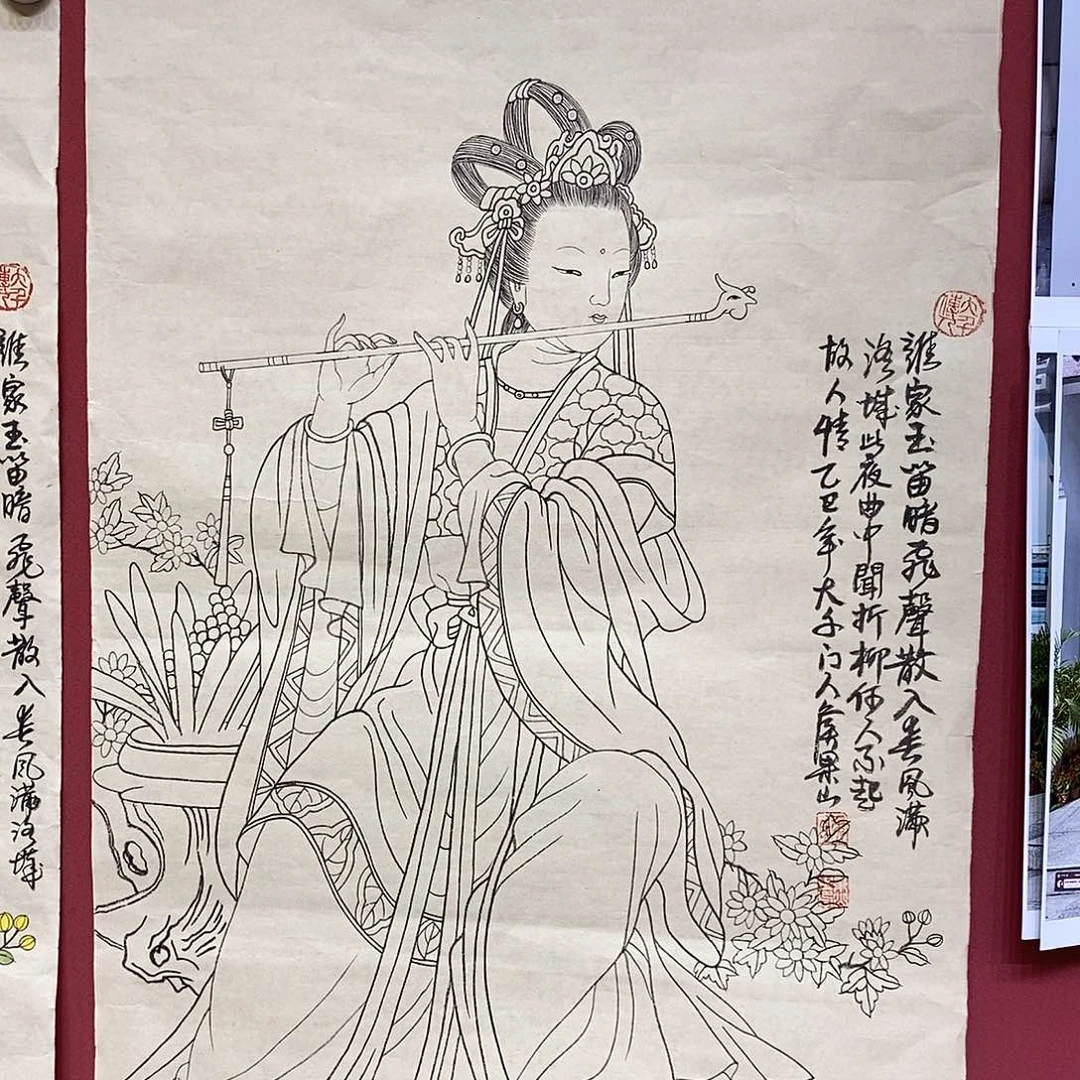 大千傳人
誰家玉笛暗飛聲散入春風滿
洛城此夜曲中聞折柳何人不起
故人情乙年大千门人山
誰家玉笛暗飛聲散入春風滿洛城